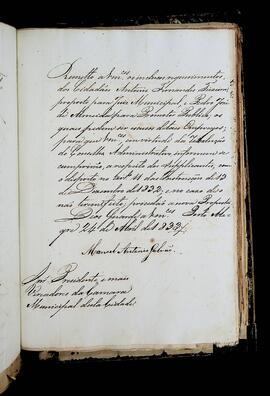 Remetto a Vmces os inclusos requerimentos
dos Cidadãos Antonio Fernandes Teixeira
proposto para Juiz Municipal, e Pedro José
de Almeida para Promotor Publico, os
quaes pedem ser excusos destes Empregos;
para que Vmces, em virtude da
do Conselho Administrativo informem se
cumprirão, a respeito dos Supplicantes, com
o disposto no Art. 11 das Instrucções de 13
de Dezembro de 1832, e no caso de o
não terem feito, procedão a nova Proposta.
Deos Guarde a Vmces Porto Ale-
gre 24 de Abril de 1833.
Manoel Antonio Galvão.
Snrs Presidente, e mais
Vereadores da Camara
Municipal desta Cidade.